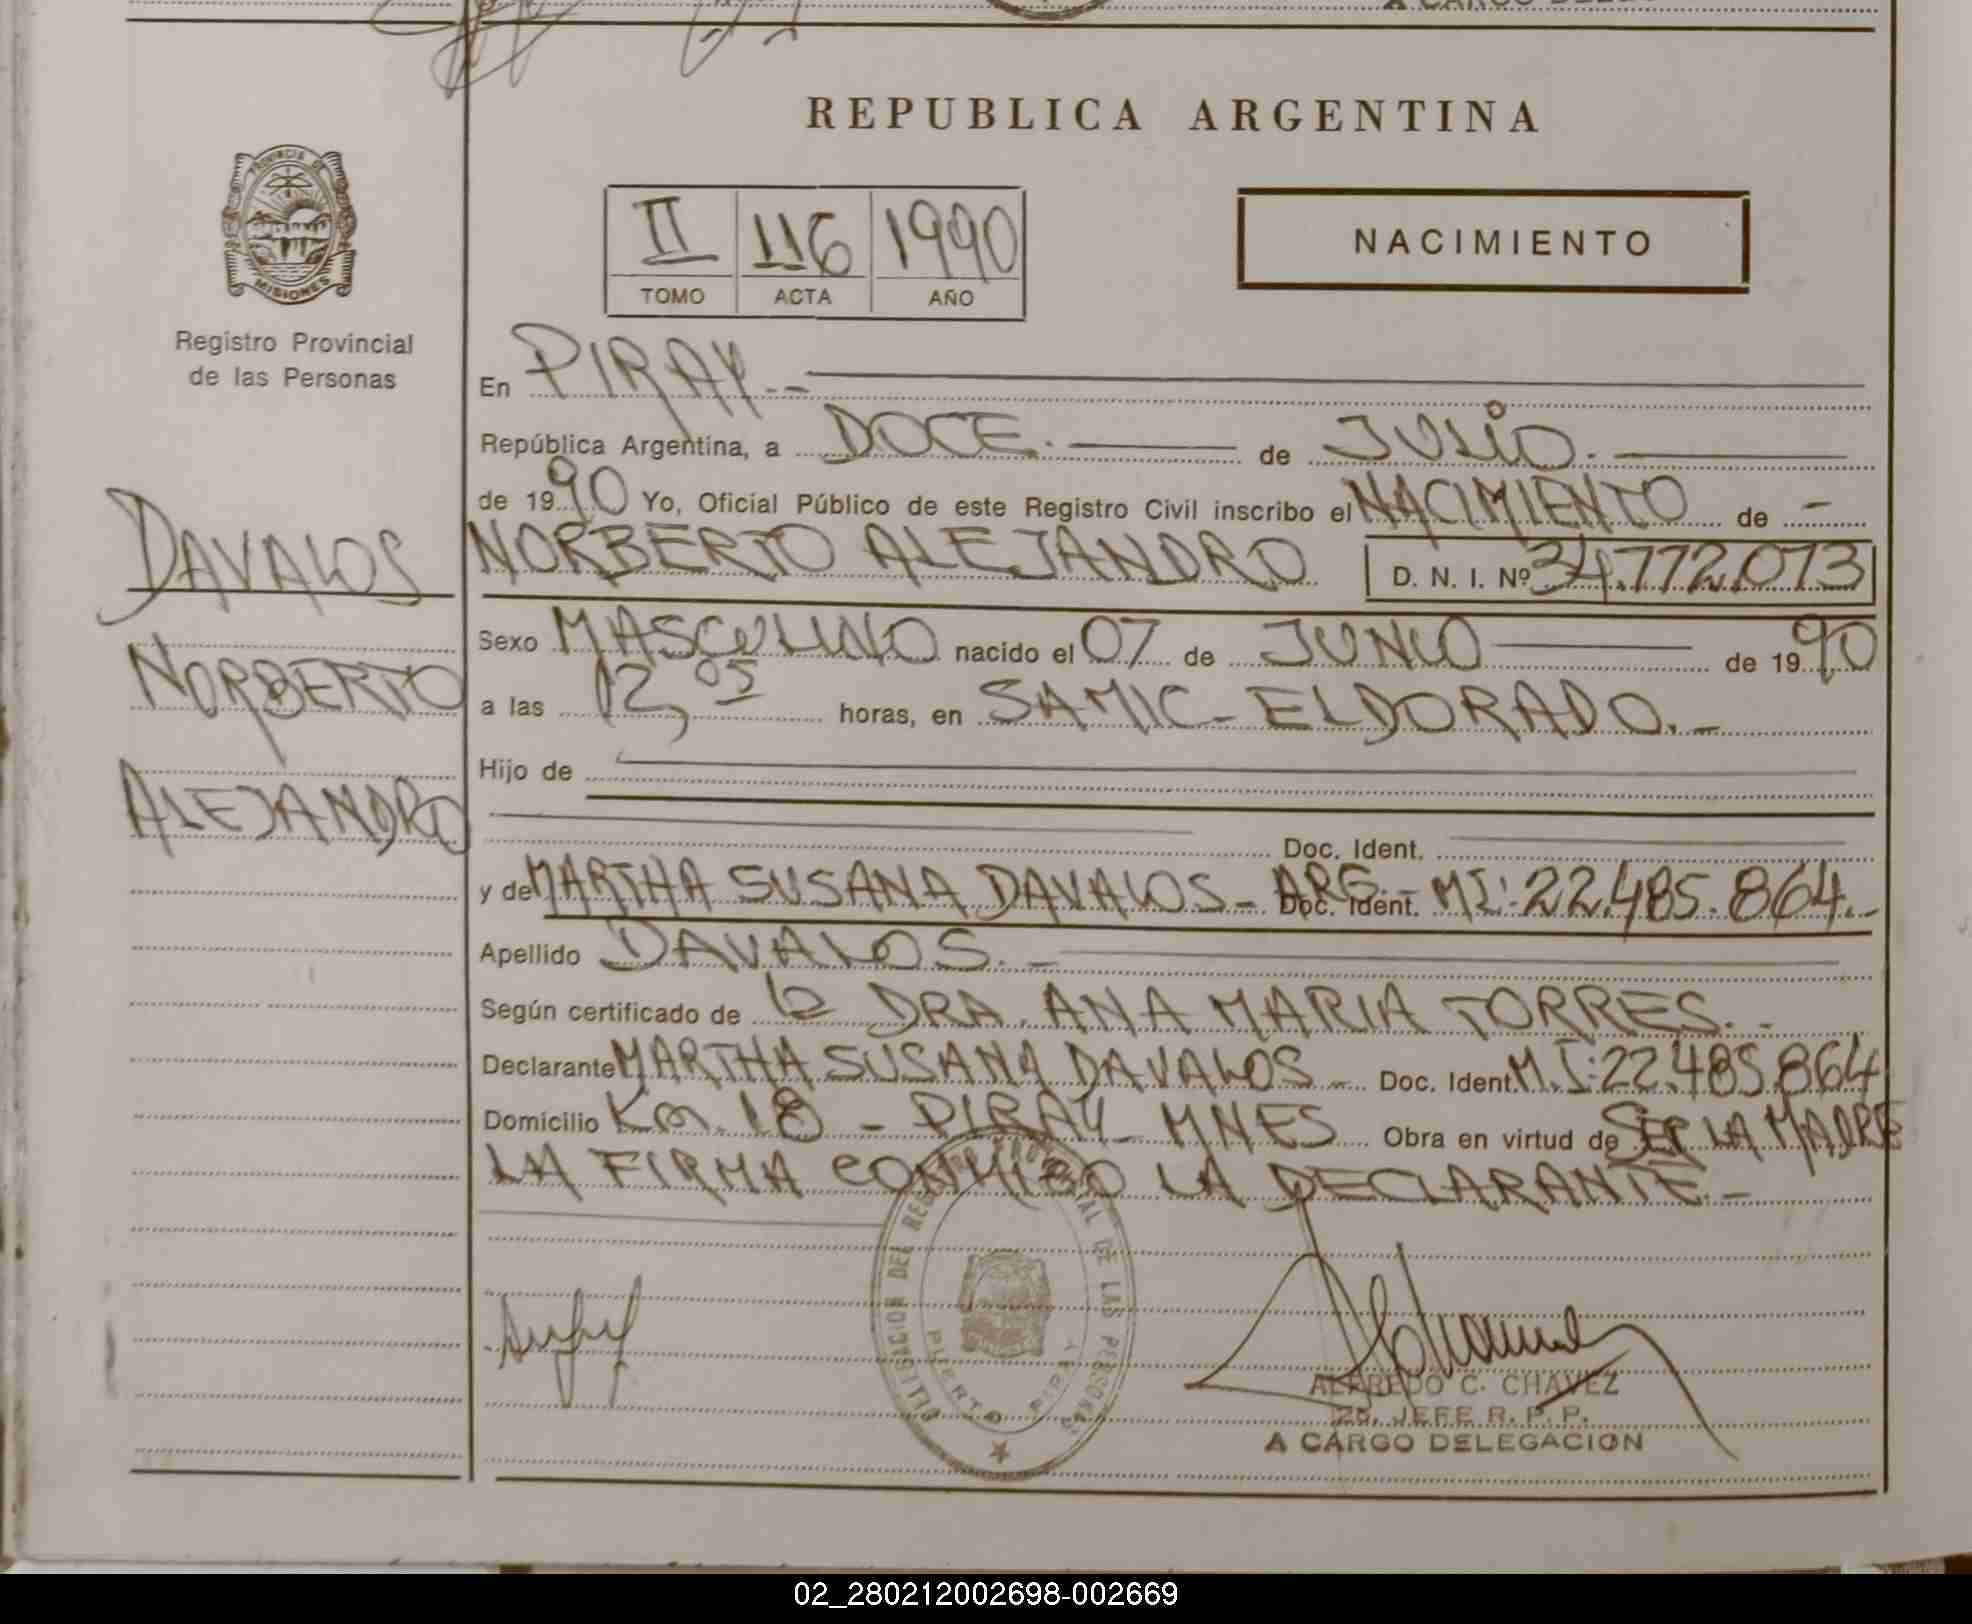 A CARGO DELEG
REPUBLICA ARGENTINA
PROVINCIA DE
MISIONES
II 116 1990
TOMO ACTA AÑO
NACIMIENTO
Registro Provincial
de las Personas
En PIRAY.--
República Argentina, a DOCE. de JULIO.
de 1990 Yo, Oficial Público de este Registro Civil inscribo el NACIMIENTO de -
NORBERTO ALEJANDRO D. N. I. Nº 34.772.073
DAVALOS
NORBERTO
ALEJANDRO
Sexo MASCULINO nacido el 07 de JUNIO de 1990
a las 12,05 horas, en SAMIC - ELDORADO.-
Hijo de
Doc. Ident.
y de MARTHA SUSANA DAVALOS - ARG.- Doc. Ident. MI: 22.485.864.-
Apellido DAVALOS.-
Según certificado de la DRA. ANA MARIA TORRES.-
Declarante MARTHA SUSANA DAVALOS - Doc. Ident. M.I: 22.485.864
Domicilio Km. 18 - PIRAY - MNES Obra en virtud de SER LA MADRE
LA FIRMA CONMIGO LA DECLARANTE -
DELEGACION DEL REGISTRO PROVINCIAL DE LAS PERSONAS
PUERTO PIRAY
ALFREDO C. CHAVEZ
2o. JEFE R. P. P.
A CARGO DELEGACION
02_280212002698-002669